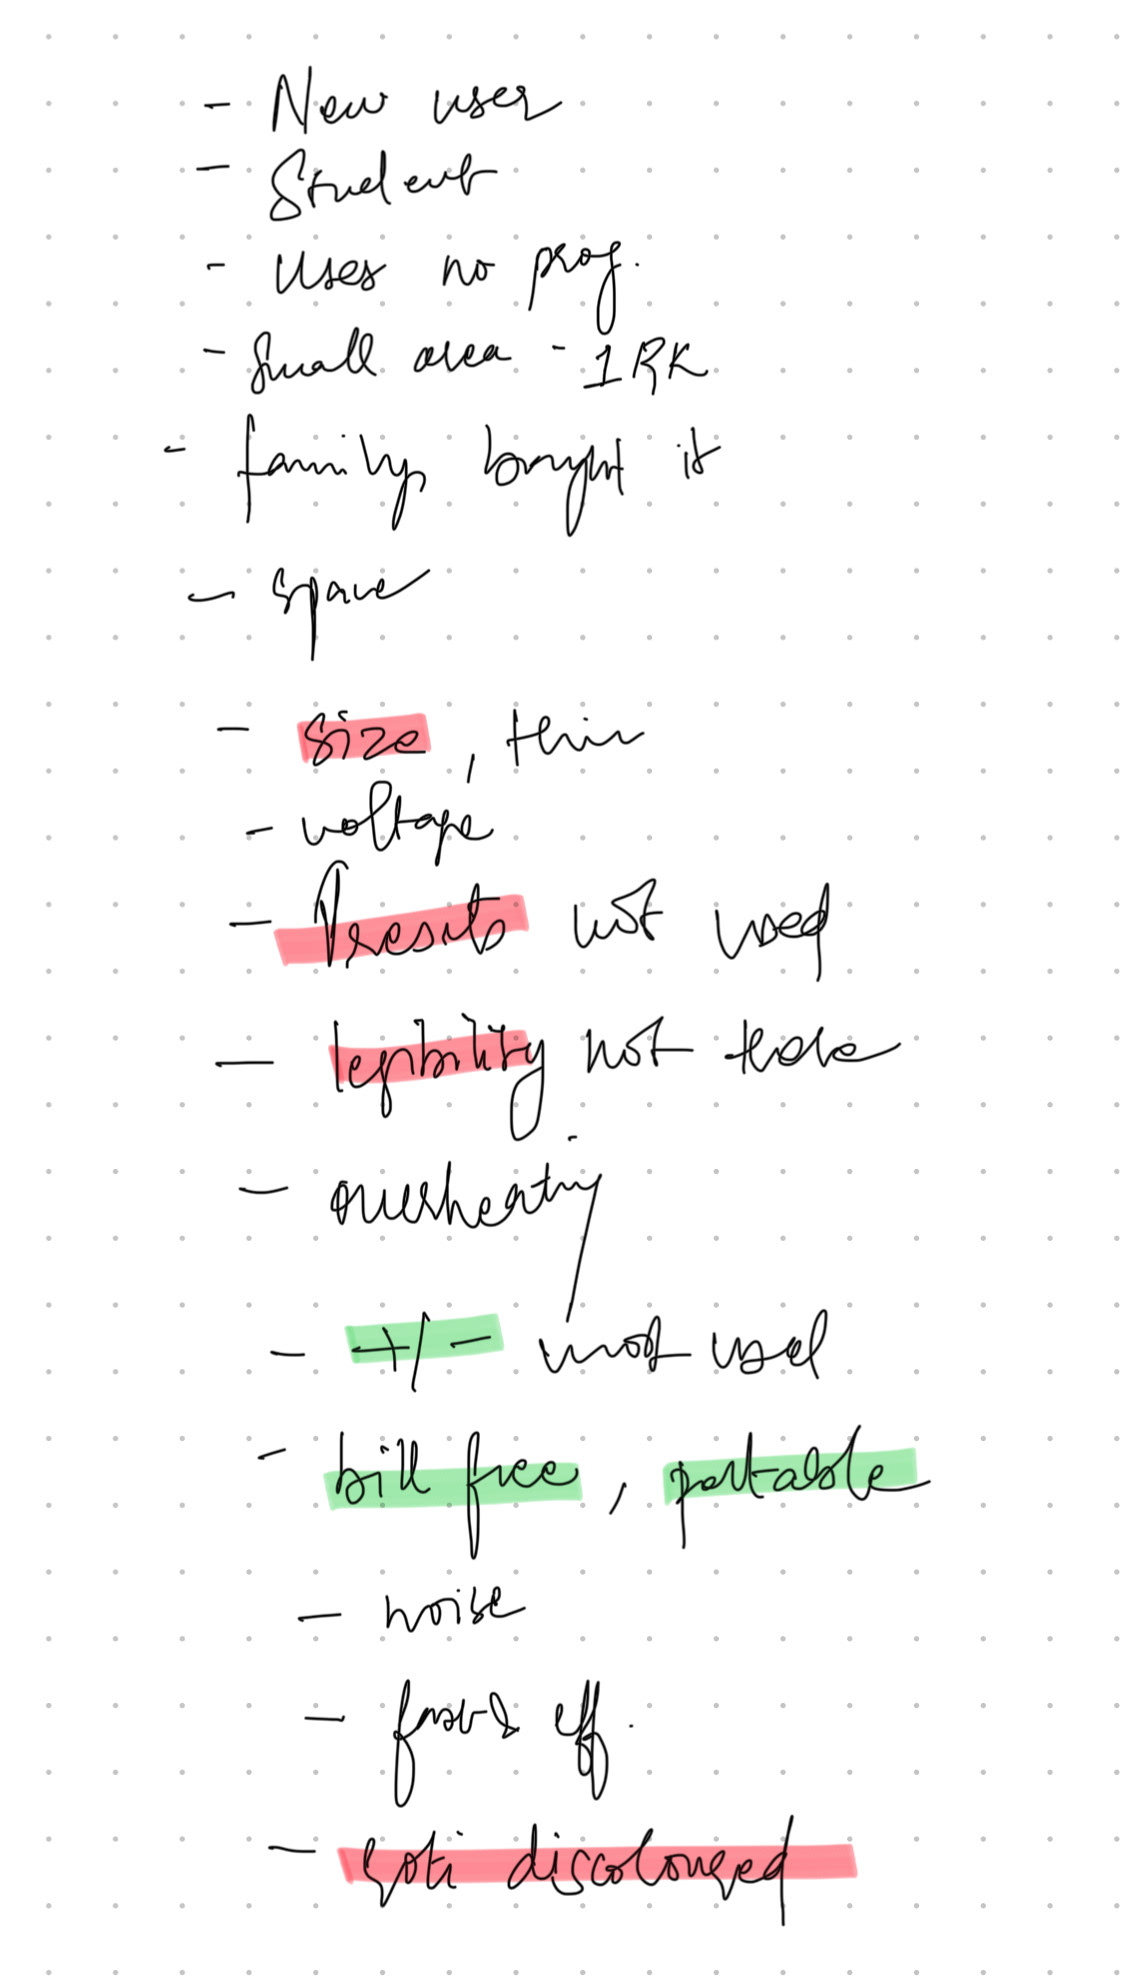 - New user
- Student
- Uses no prog.
- Small area - 1RK
- family bought it
- space
- size, thin
- voltage
- Presets not used
- legibility not there
- overheating
- +/- most used
- bill free, portable
- noise
- fast & eff.
- roti discoloured